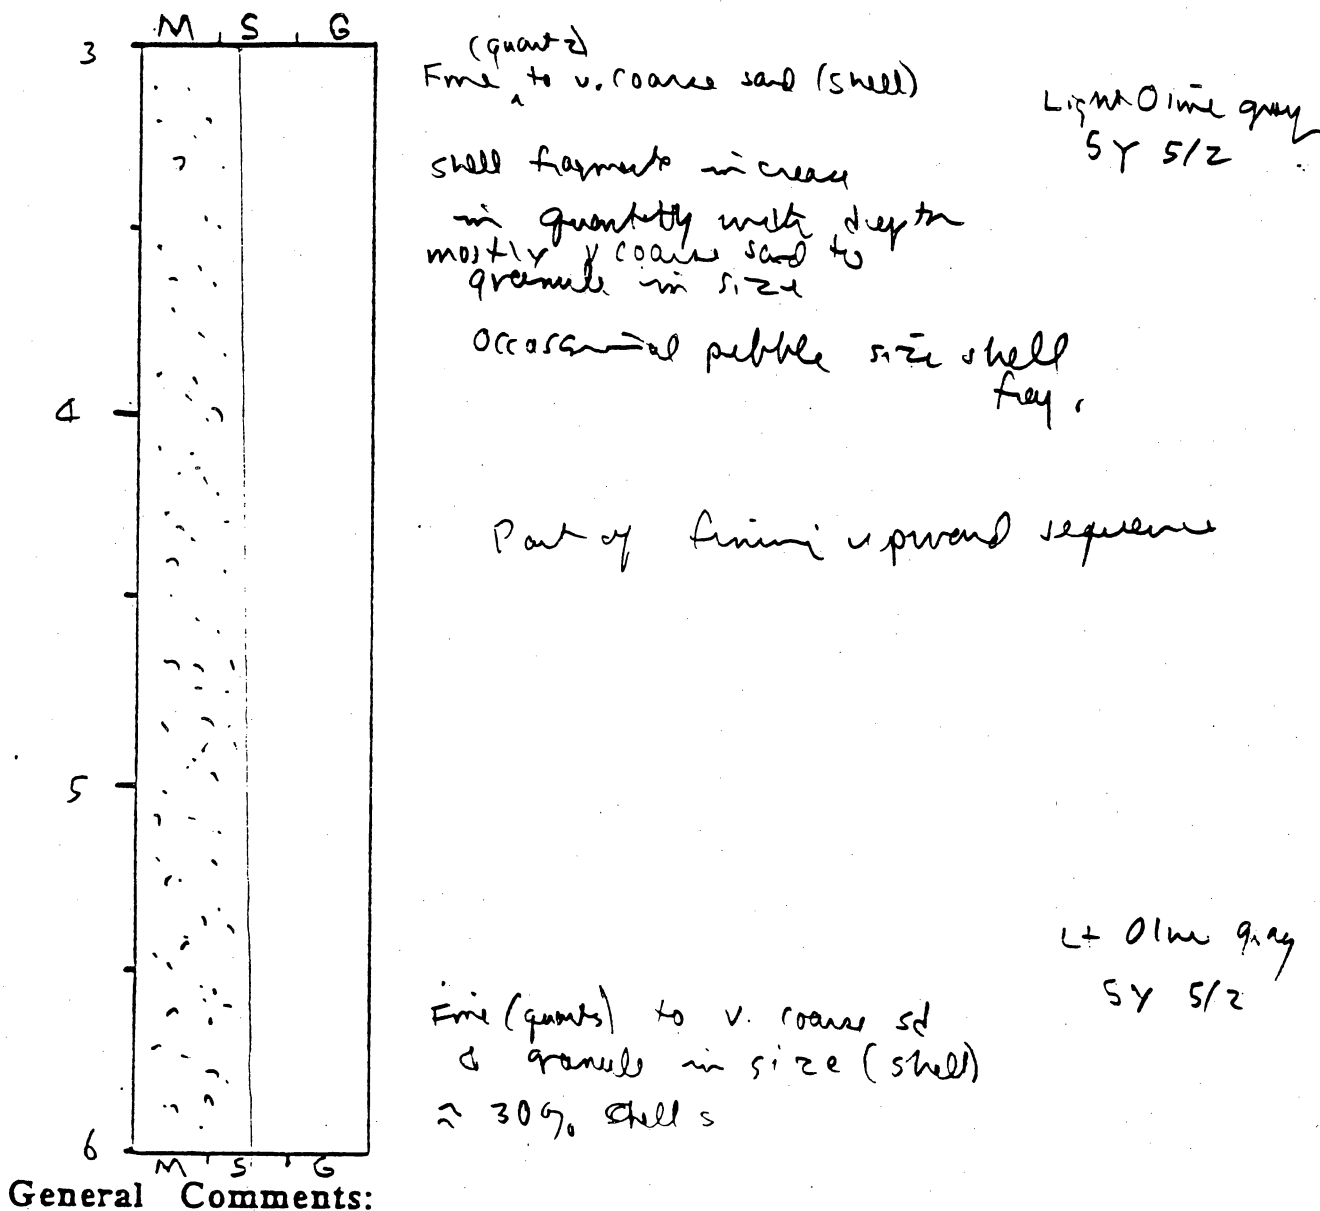 M S G
3
(quartz)
Fine ^ to v. coarse sand (shell)
Light Olive gray
5Y 5/2
shell fragments increase
in quantity with depth
mostly v coarse sand to
granule in size
Occasional pebble size shell
frag.
4
Part of fining upward sequence
5
Lt Olive gray
5Y 5/2
Fine (quartz) to v. coarse sd
& granule in size (shell)
≈ 30% shells
6
M S G
General Comments: